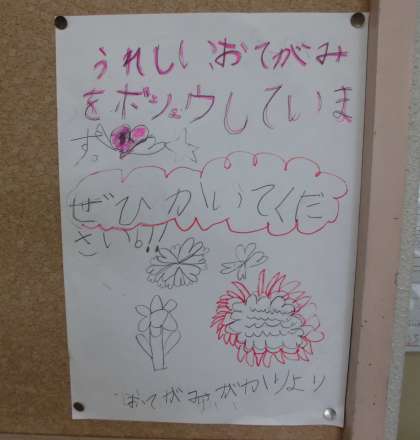 うれしいおてがみ
をボシュウしていま
す。
ぜひかいてくだ
さい。!!
おてがみがかりより